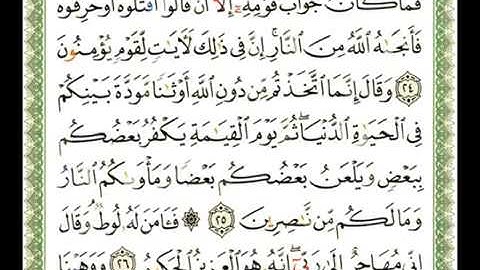 فَمَا كَانَ جَوَابَ قَوْمِهِۦٓ إِلَّآ أَن قَالُوا۟ ٱقْتُلُوهُ أَوْ حَرِّقُوهُ
فَأَنجَىٰهُ ٱللَّهُ مِنَ ٱلنَّارِ ۚ إِنَّ فِى ذَٰلِكَ لَـَٔايَـٰتٍ لِّقَوْمٍ يُؤْمِنُونَ
٢٤ وَقَالَ إِنَّمَا ٱتَّخَذْتُم مِّن دُونِ ٱللَّهِ أَوْثَـٰنًا مَّوَدَّةَ بَيْنِكُمْ
فِى ٱلْحَيَوٰةِ ٱلدُّنْيَا ۖ ثُمَّ يَوْمَ ٱلْقِيَـٰمَةِ يَكْفُرُ بَعْضُكُم
بِبَعْضٍ وَيَلْعَنُ بَعْضُكُم بَعْضًا وَمَأْوَىٰكُمُ ٱلنَّارُ
وَمَا لَكُم مِّن نَّـٰصِرِينَ ٢٥ ۞ فَـَٔامَنَ لَهُۥ لُوطٌ ۘ وَقَالَ
إِنِّى مُهَاجِرٌ إِلَىٰ رَبِّىٓ ۖ إِنَّهُۥ هُوَ ٱلْعَزِيزُ ٱلْحَكِيمُ ٢٦ وَوَهَبْنَا